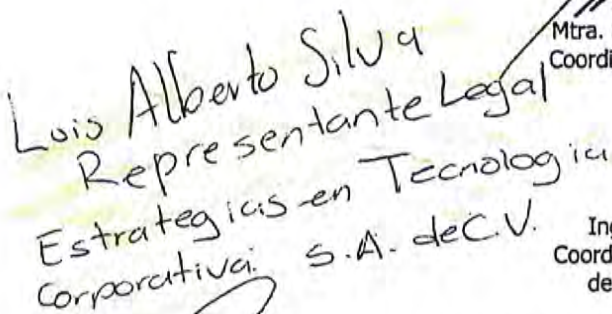 Luis Alberto Silva
Representante Legal
Estrategias en Tecnologia
Corporativa S.A. de C.V.
Mtra.
Coordi
Ing
Coord
de